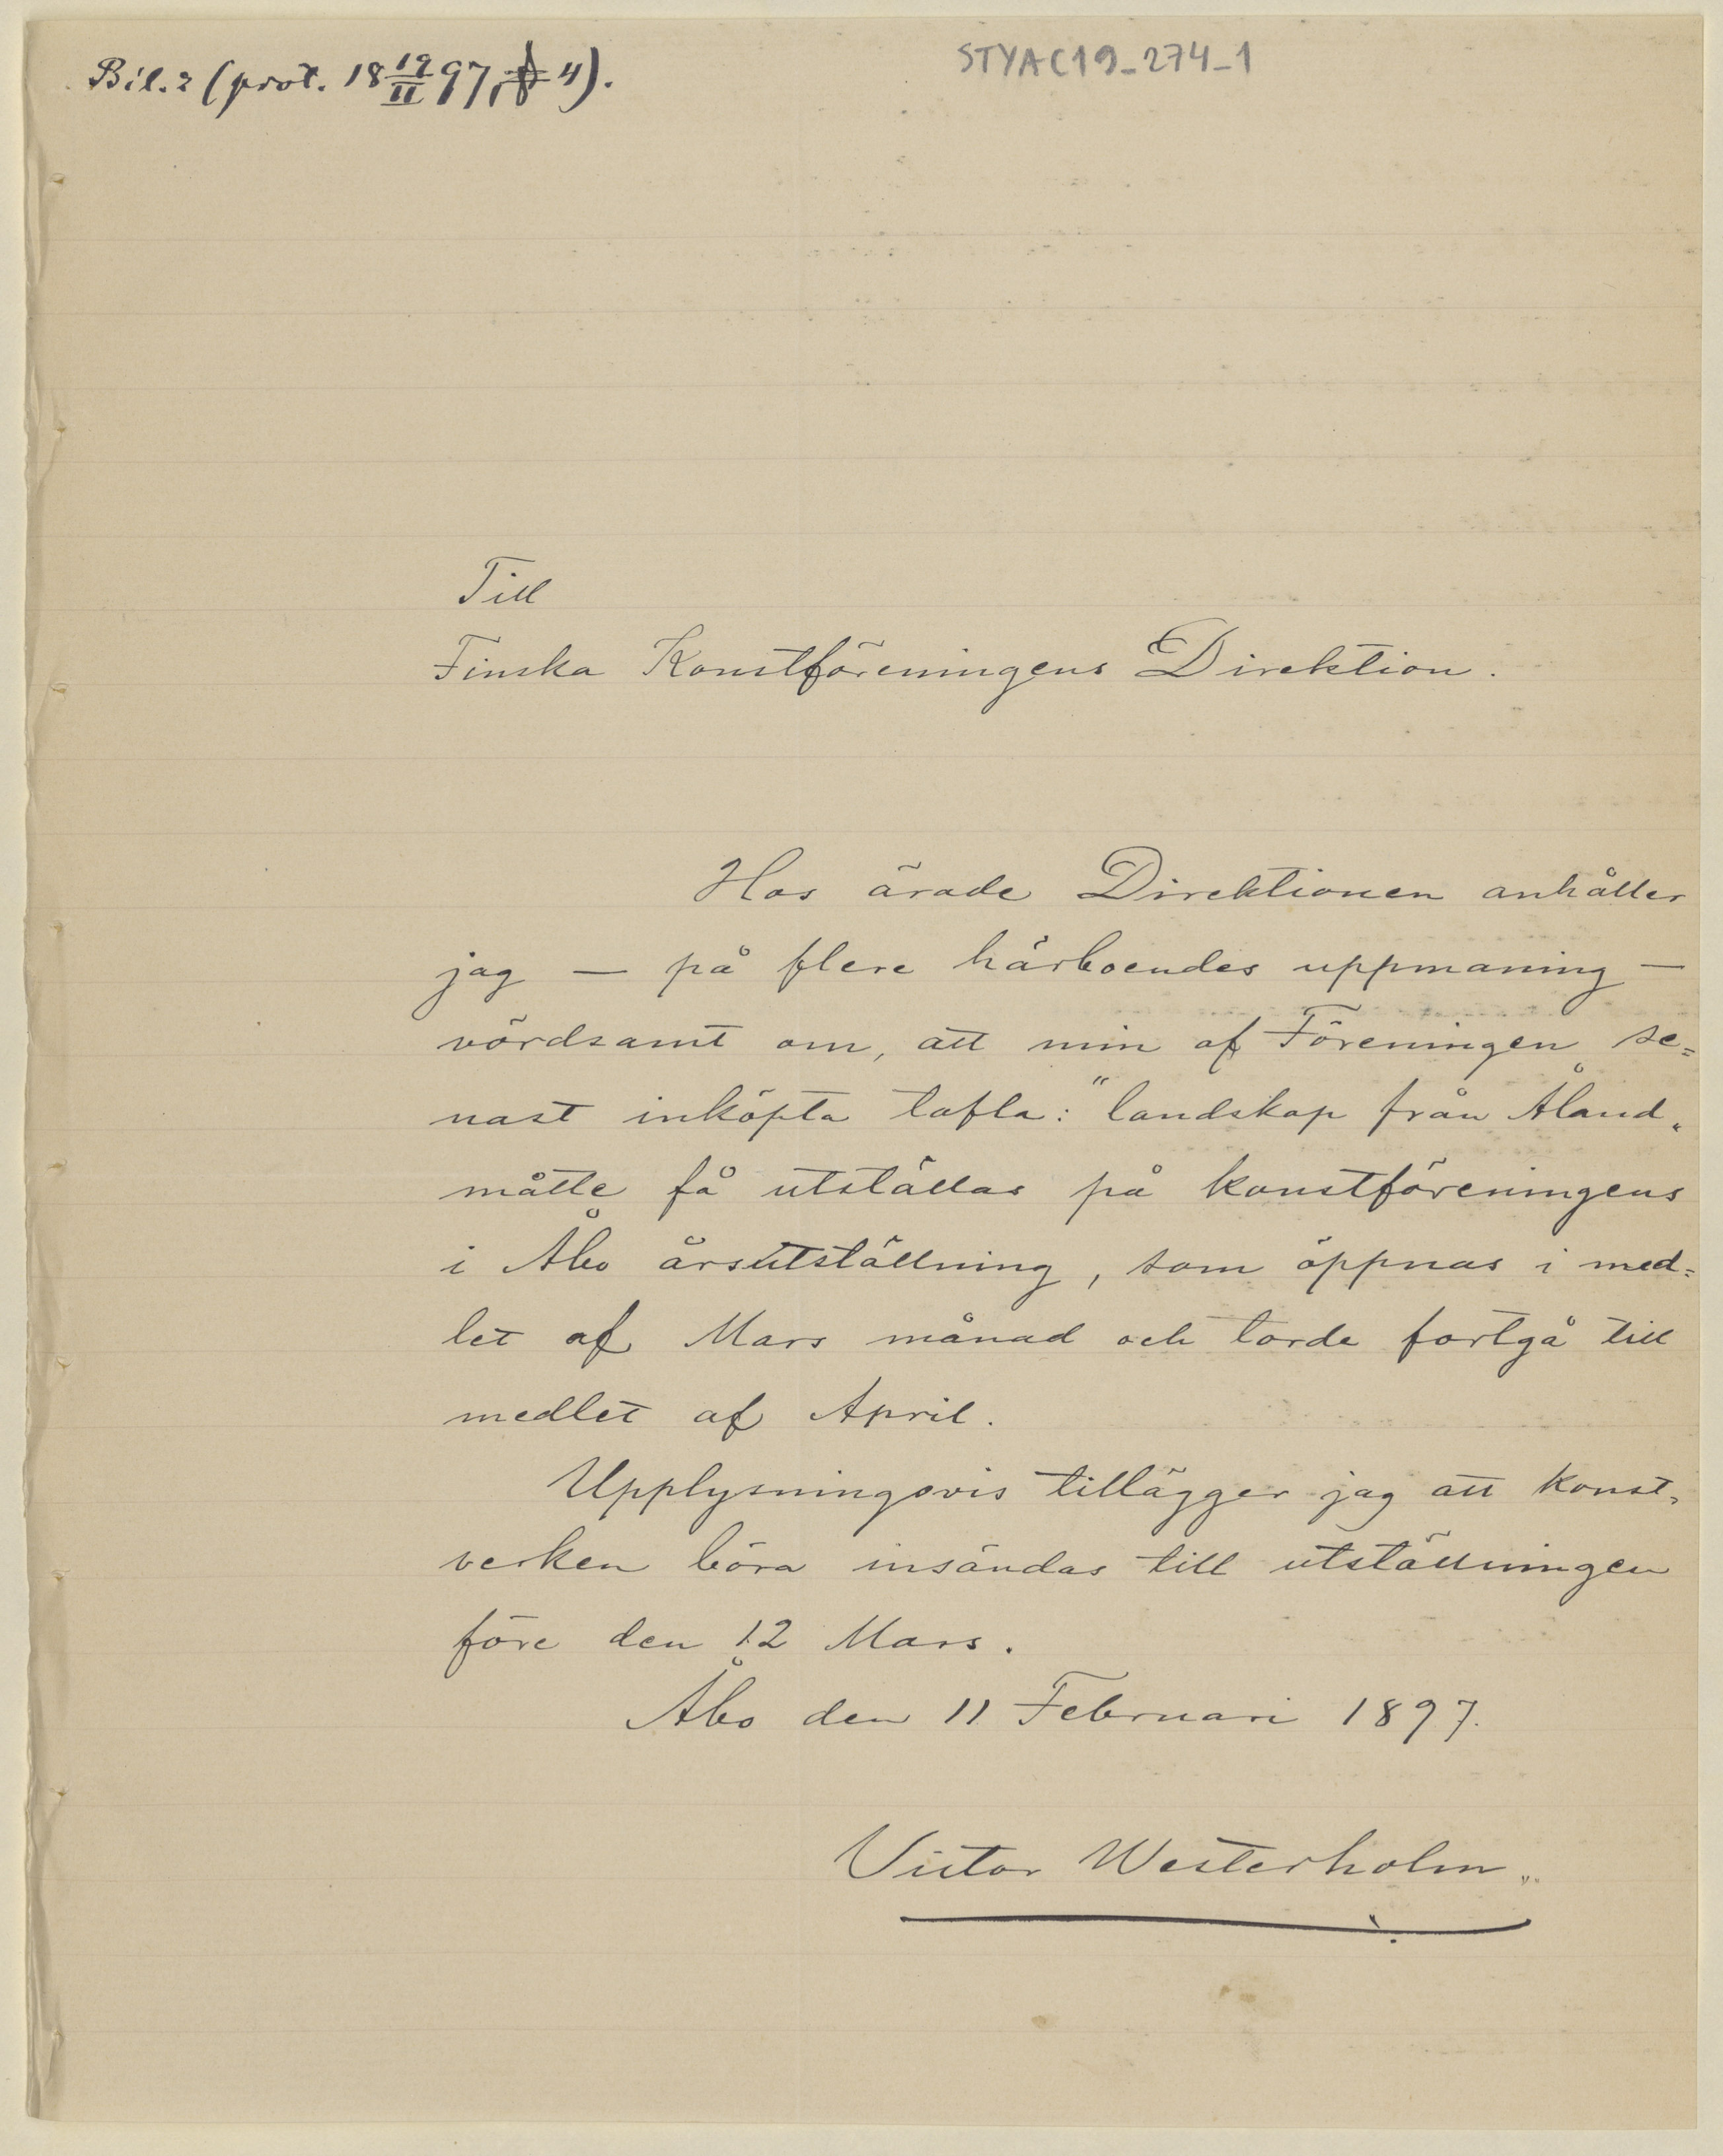 Bil. 2 (prot. 18 19/II 97, § 4).
STYA C19_274_1
Till
Finska Konstföreningens Direktion.
Hos ärade Direktionen anhåller
jag — på flere härboendes uppmaning —
vördsamt om, att min af Föreningen se=
nast inköpta tafla: "landskap från Åland„
måtte få utställas på konstföreningens
i Åbo årsutställning, som öppnas i med=
let af Mars månad och torde fortgå till
medlet af April.
Upplysningsvis tillägger jag att konst=
verken böra insändas till utställningen
före den 12 Mars.
Åbo den 11 Februari 1897.
Victor Westerholm.